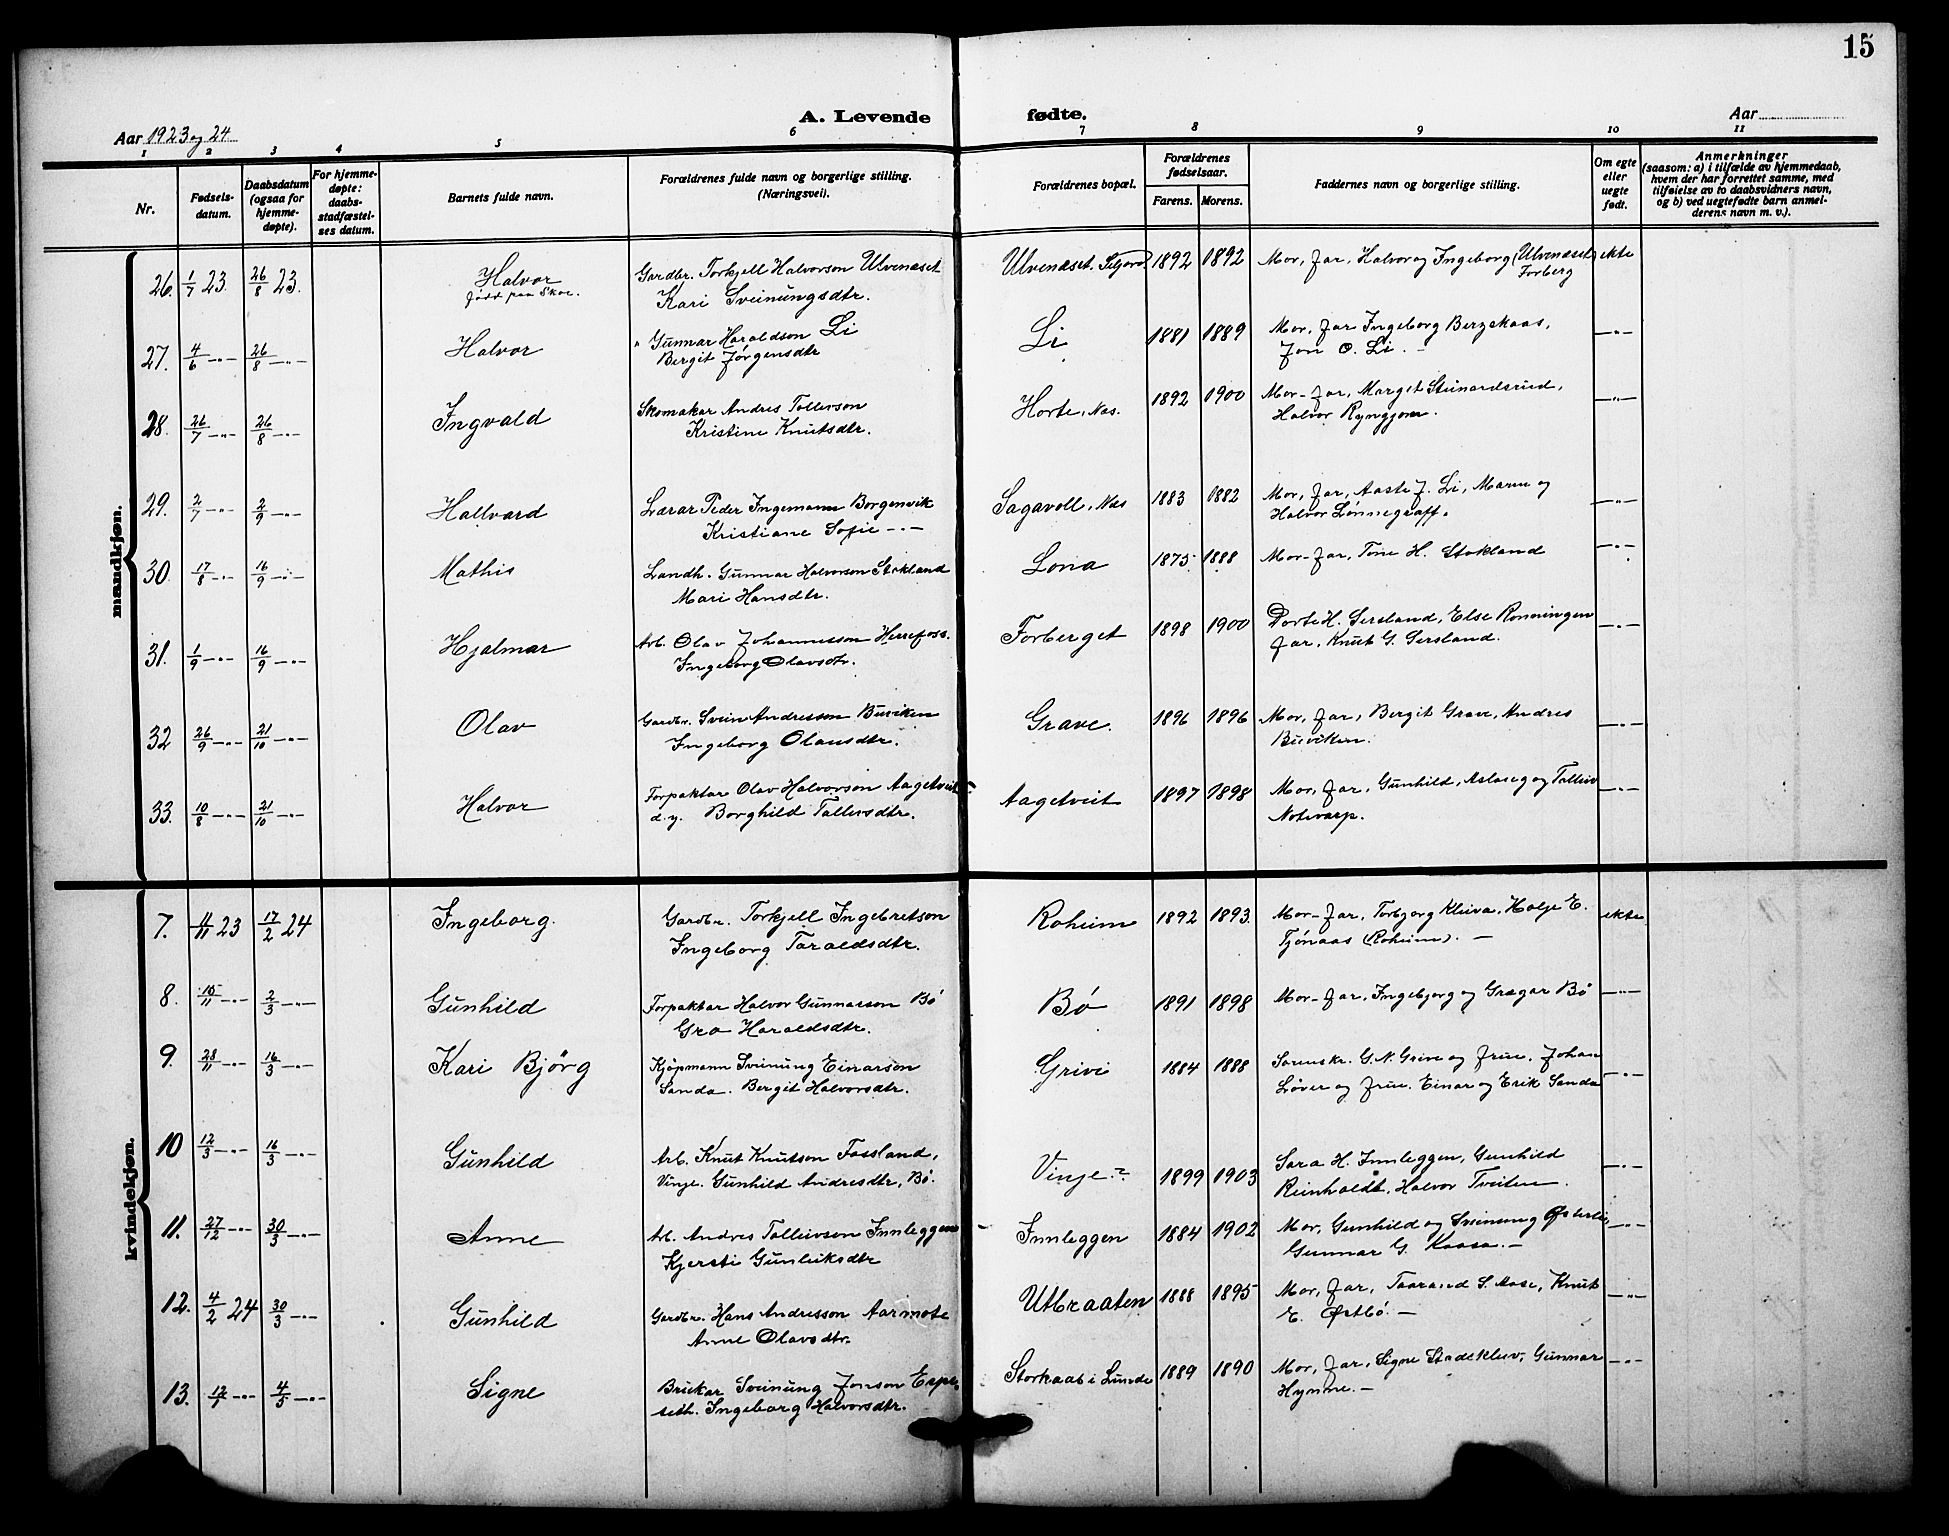 15
A. Levende fødte.
Aar 1923 og 24
Aar
1 2 3 4 5 6 7 8 9 10 11
Nr.
Fødsels-
datum.
Daabsdatum
(ogsaa for
hjemme-
døpte).
For hjemme-
døpte:
daabs-
stadfæstel-
ses datum.
Barnets fulde navn.
Forældrenes fulde navn og borgerlige stilling.
(Næringsvei).
Forældrenes bopæl.
Forældrenes
fødselsaar.
Farens. Morens.
Faddernes navn og borgerlige stilling.
Om egte
eller
uegte
født.
Anmerkninger
(saasom: a) i tilfælde av hjemmedaab,
hvem der har forrettet samme, med
tilføielse av to daabsvidners navn,
og b) ved uegtefødte barn anmel-
derens navn m. v.).
mandkjøn.
26. 1/7 23. 26/8 23. Halvor Gardbr. Torkjell Halvorson Ulvenæset Ulvenæset. Seljord 1892 1892 Mor, far, Halvor og Ingeborg (Ulvenæset ekte
født paa Skoe. Kari Sveinungsdtr. Forberg
27. 4/6 -"- 26/8 -"- Halvor " Gunnar Haraldson Li Li 1881 1889 Mor, far Ingeborg Bergskaas, -"-
Bergit Jørgensdtr Jon O. Li. -
28. 26/7 -"- 26/8 -"- Ingvald Skomakar Andres Tollevson Horte, Nes. 1892 1900 Mor - far, Marget Steinardsrud, -"-
Kristine Knutsdtr. Halvor Ryngjom.
29. 2/7 -"- 2/9 -"- Hallvard Lærar Peder Ingemann Borgenvik Sagavoll, Nes 1883 1882 Mor, far, Aaste J. Li, Maren og -"-
Kristiane Sofie -"- Halvor Lønnegraff.
30. 17/8 -"- 16/9 -"- Mathis Landh. Gunnar Halvorson Stokland Lona 1875 1888 Mor - far, Tone H. Stokland -"-
Mari Hansdtr.
31. 1/9 -"- 16/9 -"- Hjalmar Arb. Olav Johannesson Herrefoss. Forberget 1898 1900 Dorte H. Gersland, Else Rønningen -"-
Ingeborg Olavsdtr. far, Knut G. Gersland.
32 26/9 -"- 21/10 -"- Olav Gardbr. Svein Andresson Buviken Grave. 1896 1896 Mor, far, Bergit Grave, Andres -"-
Ingeborg Olavsdtr. Buviken.
33. 10/8 -"- 21/10 -"- Halvor Forpaktar Olav Halvorson Aagetveit Aagetveit 1897 1898 Mor, far, Gunhild, Aslaug og Tallev -"-
d.y. Borghild Tallevsdtr. Notevarp.
kvindekjøn.
7. 11/11 23 17/2 24 Ingeborg. Gardbr. Torkjell Ingebretson Roheim 1892 1893. Mor - far, Torbjørg Kleiva, Holje E. ekte
Ingeborg Taraldsdtr. Tjönaas (Roheim). -
8. 15/11 -"- 2/3 -"- Gunhild Forpaktar Halvor Gunnarson Bö Bö 1891 1898 Mor - far, Ingebjorg og Gregar Bö -"-
Gro Haraldsdtr.
9. 28/11 -"- 16/3 -"- Kari Bjørg Kjöpmann Sveinung Einarson Grivi 1884 1888 Sorenskr. G. N. Grive og frue, Johan -"-
Sanda. Bergit Halvorsdtr. Löver og frue. Einar og Erik Sanda
10 12/3 -"- 16/3 -"- Gunhild Arb. Knut Knutson Fossland, Vinje -"- 1899 1903 Sara H. Innleggen, Gunhild -"-
Vinje. Gunhild Andresdtr, Bö. Reinholdt, Halvor Tveiten.
11. 27/12 -"- 30/3 -"- Anne Arb. Andres Tolleivson Innleggen Innleggen 1884 1902 Mor, Gunhild og Sveinung Østerli -"-
Kjersti Gunleiksdtr Gunnar G. Kaasa. -
12. 4/2 24 30/3 -"- Gunhild Gardbr. Hans Andresson Aarmote Utbraaten 1888 1895 Mor, far, Taarand S. Mose, Knut -"-
Anne Olavsdtr. E. Østbö. -
13. 12/1 -"- 4/5 -"- Signe Brukar Sveinung Jonson Espe- Storkaas i Lunde 1889 1890 Mor, far, Signe Stadskleiv, Gunnar -"-
seth. Ingeborg Halvorsdtr. Hynme. -